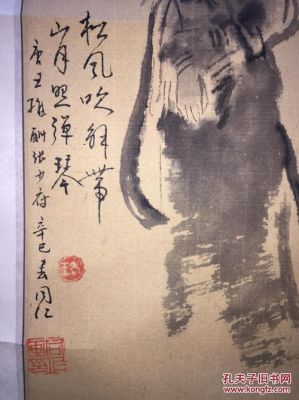 松风吹解带
山月照弹琴
唐王维酬张少府 辛巳春
孔夫子旧书网